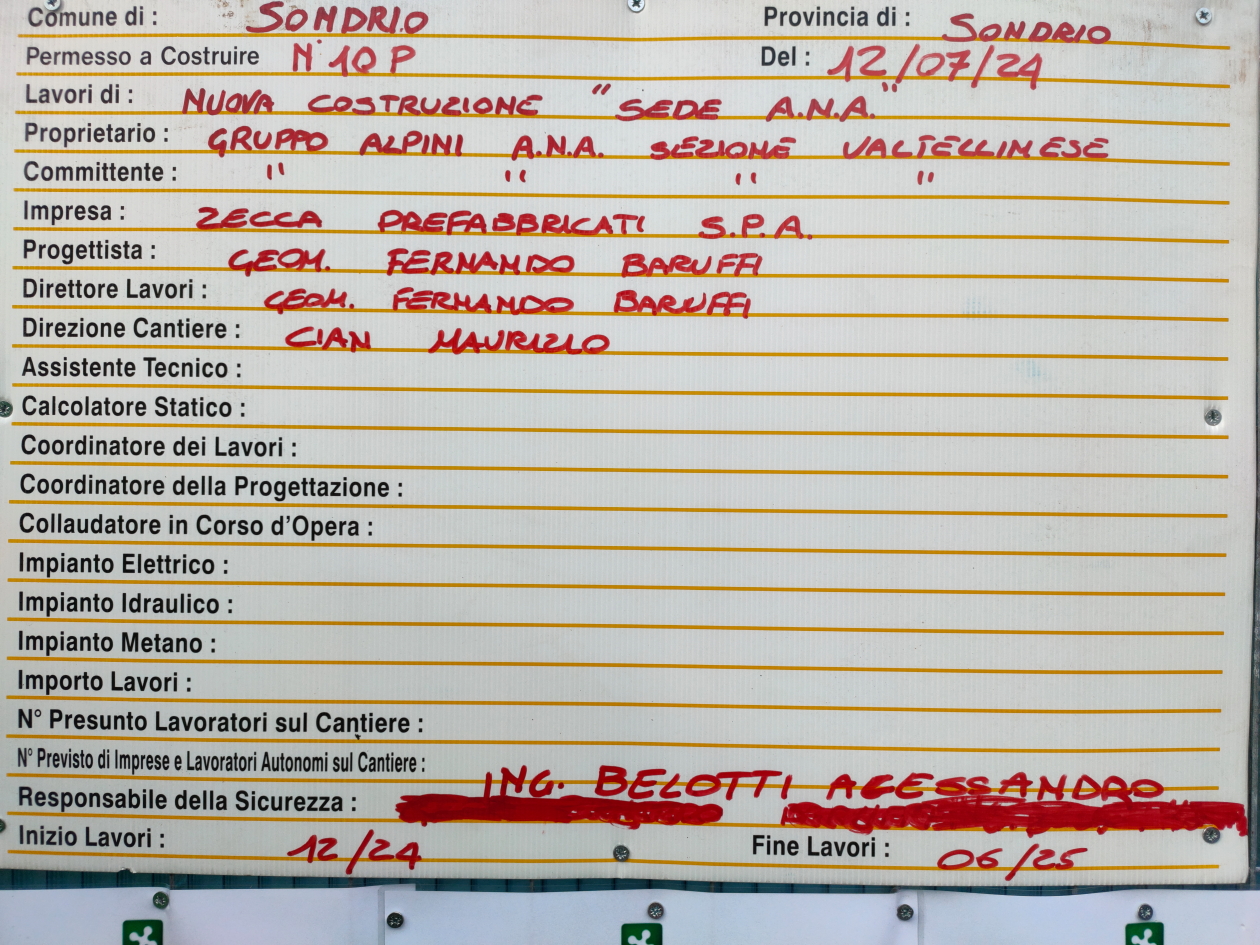 Comune di : SONDRIO Provincia di : SONDRIO
Permesso a Costruire N° 10 P Del : 12/07/24
Lavori di : NUOVA COSTRUZIONE "SEDE A.N.A."
Proprietario : GRUPPO ALPINI A.N.A. SEZIONE VALTELLINESE
Committente : " " " "
Impresa : ZECCA PREFABBRICATI S.P.A.
Progettista : GEOM. FERNANDO BARUFFI
Direttore Lavori : GEOM. FERNANDO BARUFFI
Direzione Cantiere : CIAN MAURIZIO
Assistente Tecnico :
Calcolatore Statico :
Coordinatore dei Lavori :
Coordinatore della Progettazione :
Collaudatore in Corso d'Opera :
Impianto Elettrico :
Impianto Idraulico :
Impianto Metano :
Importo Lavori :
N° Presunto Lavoratori sul Cantiere :
N° Previsto di Imprese e Lavoratori Autonomi sul Cantiere :
ING. BELOTTI ALESSANDRO
Responsabile della Sicurezza :
Inizio Lavori : 12/24 Fine Lavori : 06/25